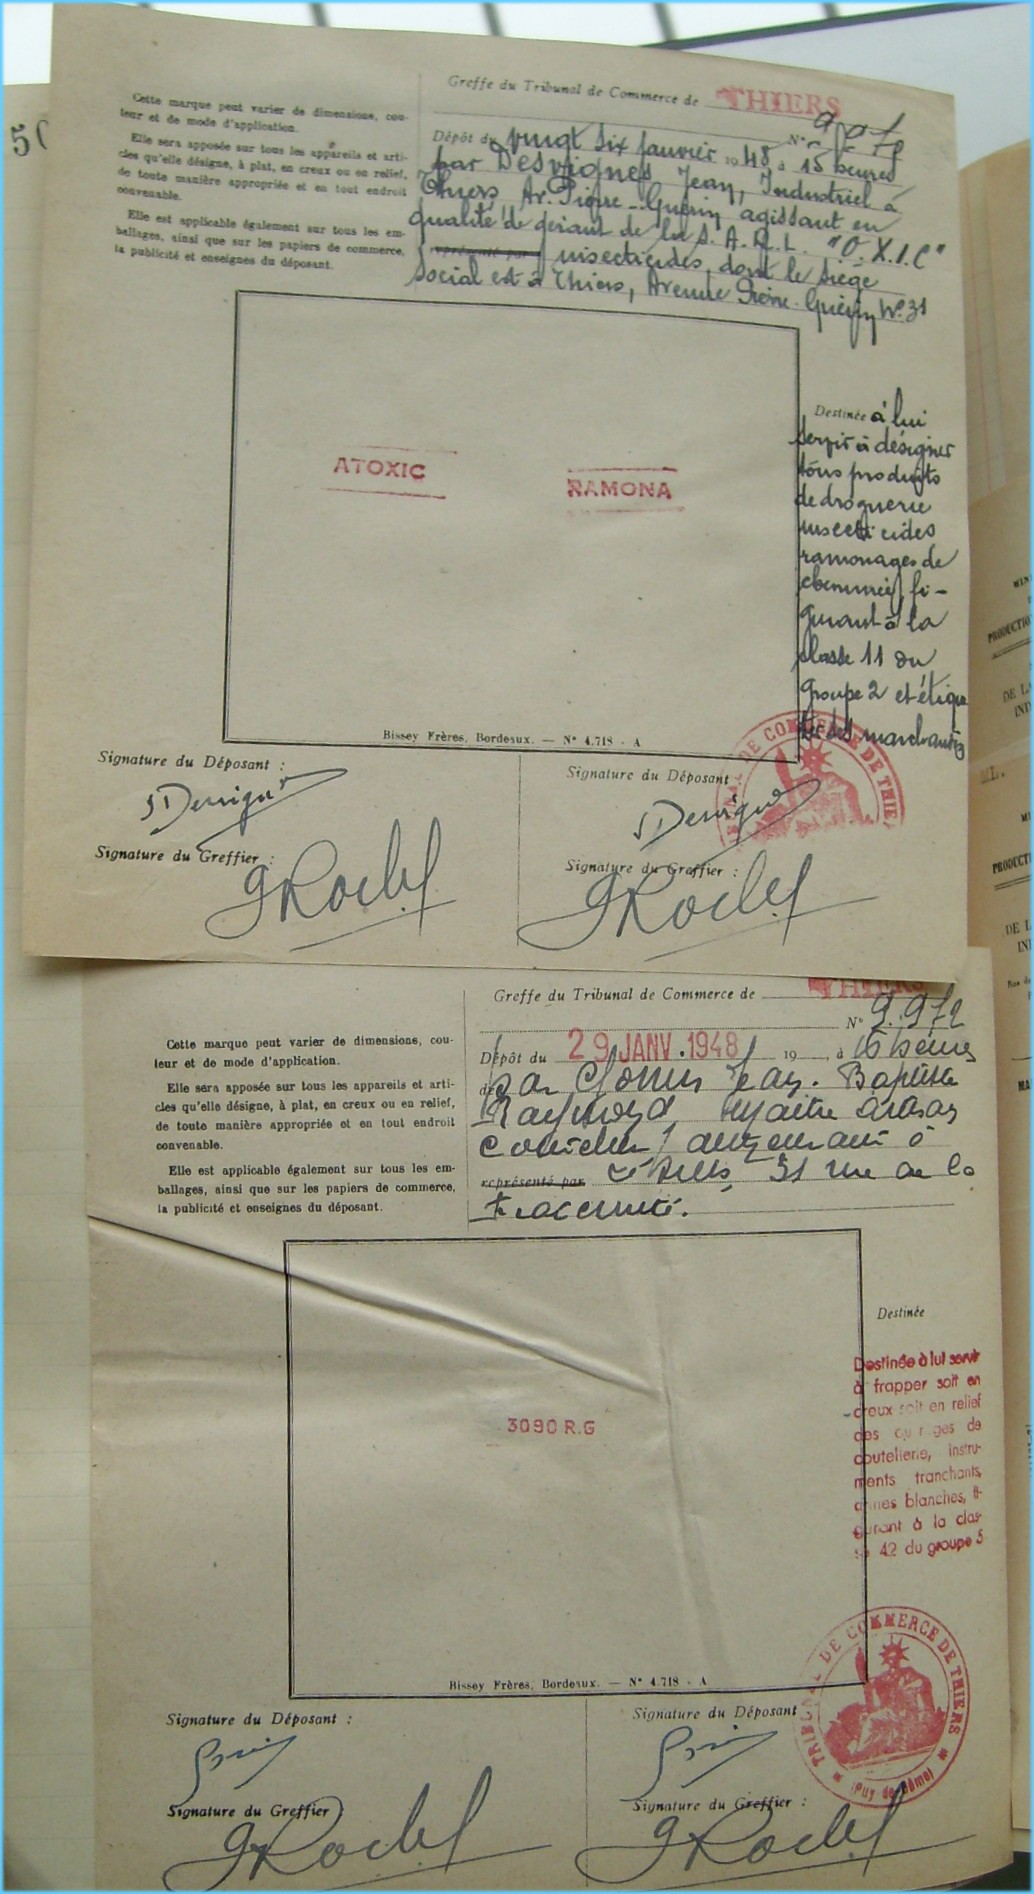 50
Greffe du Tribunal de Commerce de THIERS
Cette marque peut varier de dimensions, cou-
leur et de mode d'application.
Elle sera apposée sur tous les appareils et arti-
cles qu'elle désigne, à plat, en creux ou en relief,
de toute manière appropriée et en tout endroit
convenable.
Elle est applicable également sur tous les em-
ballages, ainsi que sur les papiers de commerce,
la publicité et enseignes du déposant.
N°
Dépôt du vingt six janvier 1948 à 15 heures
par Desvignes Jean, Industriel à
Thiers, Av. Pierre-Guérin agissant en
qualité de gérant de la S.A.R.L. "O.X.I.C"
représenté par insecticides, dont le siège
social est à Thiers, Avenue Pierre-Guérin N° 31
ATOXIC
RAMONA
Destinée à lui
servir à désigner
tous produits
de droguerie
insecticides
ramonages de
cheminées, fi-
gurant à la
classe 11 du
groupe 2
Bissey Frères, Bordeaux. — N° 4.718 - A
DE COMMERCE DE THIE
Signature du Déposant :
Signature du Déposant
Signature du Greffier :
Signature du Greffier :
Greffe du Tribunal de Commerce de THIERS
N° 9.972
Cette marque peut varier de dimensions, cou-
leur et de mode d'application.
Elle sera apposée sur tous les appareils et arti-
cles qu'elle désigne, à plat, en creux ou en relief,
de toute manière appropriée et en tout endroit
convenable.
Elle est applicable également sur tous les em-
ballages, ainsi que sur les papiers de commerce,
la publicité et enseignes du déposant.
Dépôt du 29 JANV. 1948 19 , à 16 heures
par Jean-Baptiste
Raymond, maître artisan
coutelier, demeurant à
représenté par Thiers, 31 rue de la
Fraternité.
3090 R.G
Destinée
Destinée à lui servir
à frapper soit en
creux soit en relief
des ouvrages de
coutellerie, instru-
ments tranchants,
armes blanches, fi-
gurant à la clas-
se 42 du groupe 5
Bissey Frères, Bordeaux. — N° 4.718 - A
TRIBUNAL DE COMMERCE DE THIERS
(Puy de Dôme)
Signature du Déposant :
Signature du Déposant
Signature du Greffier
Signature du Greffier :